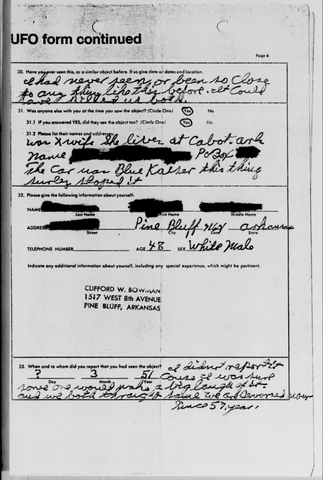 UFO form continued
Page 6
30. Have you ever seen this, or a similar object before. If so give date or dates and location.
I had never seen or been so close
to any thing like this before. It could
have killed us both.
31. Was anyone else with you at the time you saw the object? (Circle One) Yes No
31.1 If you answered YES, did they see the object too? (Circle One) Yes No
31.2 Please list their names and addresses:
was X wife She lives at Cabot. ark
name PO Box
The car was Blue Kaiser this thing
surely stoped it
32. Please give the following information about yourself:
NAME
Last Name First Name Middle Name
ADDRESS Pine Bluff arkansas
Street City Zone State
TELEPHONE NUMBER AGE 48 SEX White Male
Indicate any additional information about yourself, including any special experience, which might be pertinent.
CLIFFORD W. BOWMAN
1517 WEST 8th AVENUE
PINE BLUFF, ARKANSAS
33. When and to whom did you report that you had seen the object? I didnt report it
? 3 51 Cause I was sure
Day Month Year
some one would make a big laugh of it.
and we both thought same we are Divorced now
Since 57. year.